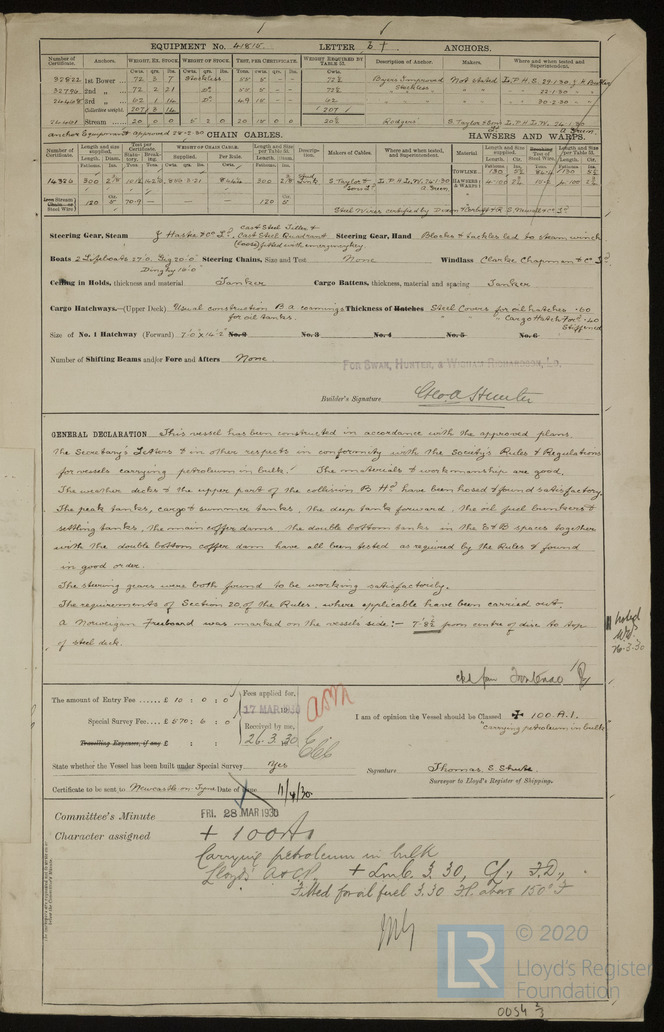 EQUIPMENT No. 41815 LETTER ANCHORS.
Number of Certificate. Anchors. WEIGHT, EX. STOCK. WEIGHT OF STOCK. TEST, PER CERTIFICATE. WEIGHT REQUIRED BY TABLE 31. Description of Anchor. Makers. Where and when tested and Superintendent.
Cwts. qrs. lbs. Cwts. qrs. lbs. Tons. cwts. qrs. lbs. Cwts.
32822 1st Bower 72 3 7 Stockless 55 5 - - 72½ Byers Improved Not stated L.P.H.S. 29.1.30 J.H. Butler
32796 2nd „ 72 2 21 Do 55 5 - - 72½ Stockless 22.1.30
24408 3rd „ 62 1 14 Do 49 15 - - 62 20.2.30
Collective weight. 207 3 14 207
24401 Stream 20 0 0 5 2 0 20 15 0 0 20½ Rodgers S. Taylor & Sons Ld L.P.H.W. 24.1.30 A. Green
Anchor Equipment approved 28.12.30 CHAIN CABLES. HAWSERS AND WARPS.
Number of Certificate. Length and size supplied. Test per Certificate WEIGHT OF CHAIN CABLE. Length and size per Table 31. Description. Makers of Cables. Where and when tested, and Superintendent. Material Length and Size supplied. Breaking Test of Steel Wire Length and Size per Table 31.
Length. Diam. Supplied. Per Rule. Length. Diam.
14326 300 Stud Link S Taylor & Sons Ld L.P.H.W. 24.1.30 A Green
TOWLINE 130 130
HAWSERS & WARPS 4-100 4 100
Stream Chain or Steel Wire 120 70.9 120 5
Steel Wires certified by Dixon & Corbitt & R.S. Newall & Co Ld
Steering Gear, Steam J Hastie & Co Ld. Cast Steel Tiller & Cast Steel Quadrant (loose) fitted with emergency key Steering Gear, Hand Blocks & tackles led to steam winch
Boats 2 Lifeboats 27.0 Gig 20.0 Dinghy 16.0 Steering Chains, Size and Test None Windlass Clarke Chapman & Co Ld.
Ceiling in Holds, thickness and material Tanker Cargo Battens, thickness, material and spacing Tanker
Cargo Hatchways.—(Upper Deck) Usual construction B A coamings for oil tanks. Thickness of Hatches Steel Covers for oil hatches .60
„ „ Cargo Hatch Ford .40 Stiffened
Size of No. 1 Hatchway (Forward) 7'0" x 14'2" No. 2 No. 3 No. 4 No. 5 No. 6
Number of Shifting Beams and/or Fore and Afters None
FOR SWAN, HUNTER, & WIGHAM RICHARDSON, LD.
Builder's Signature Geo. A Hunter
GENERAL DECLARATION This vessel has been constructed in accordance with the approved plans,
the Secretary's Letters & in other respects in conformity with the Society's Rules & Regulations
for vessels carrying petroleum in bulk. The materials & workmanship are good.
The weather decks & the upper part of the collision B Hd have been hosed & found satisfactory.
The peak tanks, cargo & summer tanks, the deep tank forward, the oil fuel bunkers &
settling tanks, the main coffer dams, the double bottom tanks in the E & B spaces together
with the double bottom coffer dam have all been tested as required by the Rules & found
in good order.
The steering gears were both found to be working satisfactorily.
The requirements of Section 20, of the Rules, where applicable have been carried out.
A Norweigan Freeboard was marked on the vessels side:- 7'8½" from centre of disc to top
of steel deck.
Noted
26.3.30
The amount of Entry Fee £ 10 : 0 : 0 Fees applied for,
17 MAR 1930
Special Survey Fee £ 570 : 6 : 0 Received by me,
26.3.30
Travelling Expenses, if any £ : :
I am of opinion the Vessel should be Classed ✠ 100 A.1.
"carrying petroleum in bulk"
State whether the Vessel has been built under Special Survey Yes
Signature Thomas S.
Surveyor to Lloyd's Register of Shipping.
Certificate to be sent to Newcastle on Tyne Date of issue 11/4/30
Committee's Minute FRI. 28 MAR 1930
Character assigned + 100A1
Carrying petroleum in bulk
Lloyds A & CP. + LMC 3.30, CL, F.D,
Fitted for oil fuel 3.30 F.P. above 150° F
LR
© 2020
Lloyd's Register
Foundation
0054 2/3